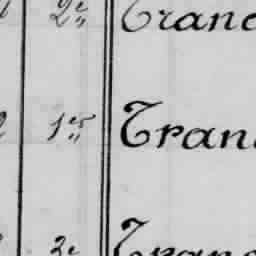 2e Tran
1er Tran
2e Tran